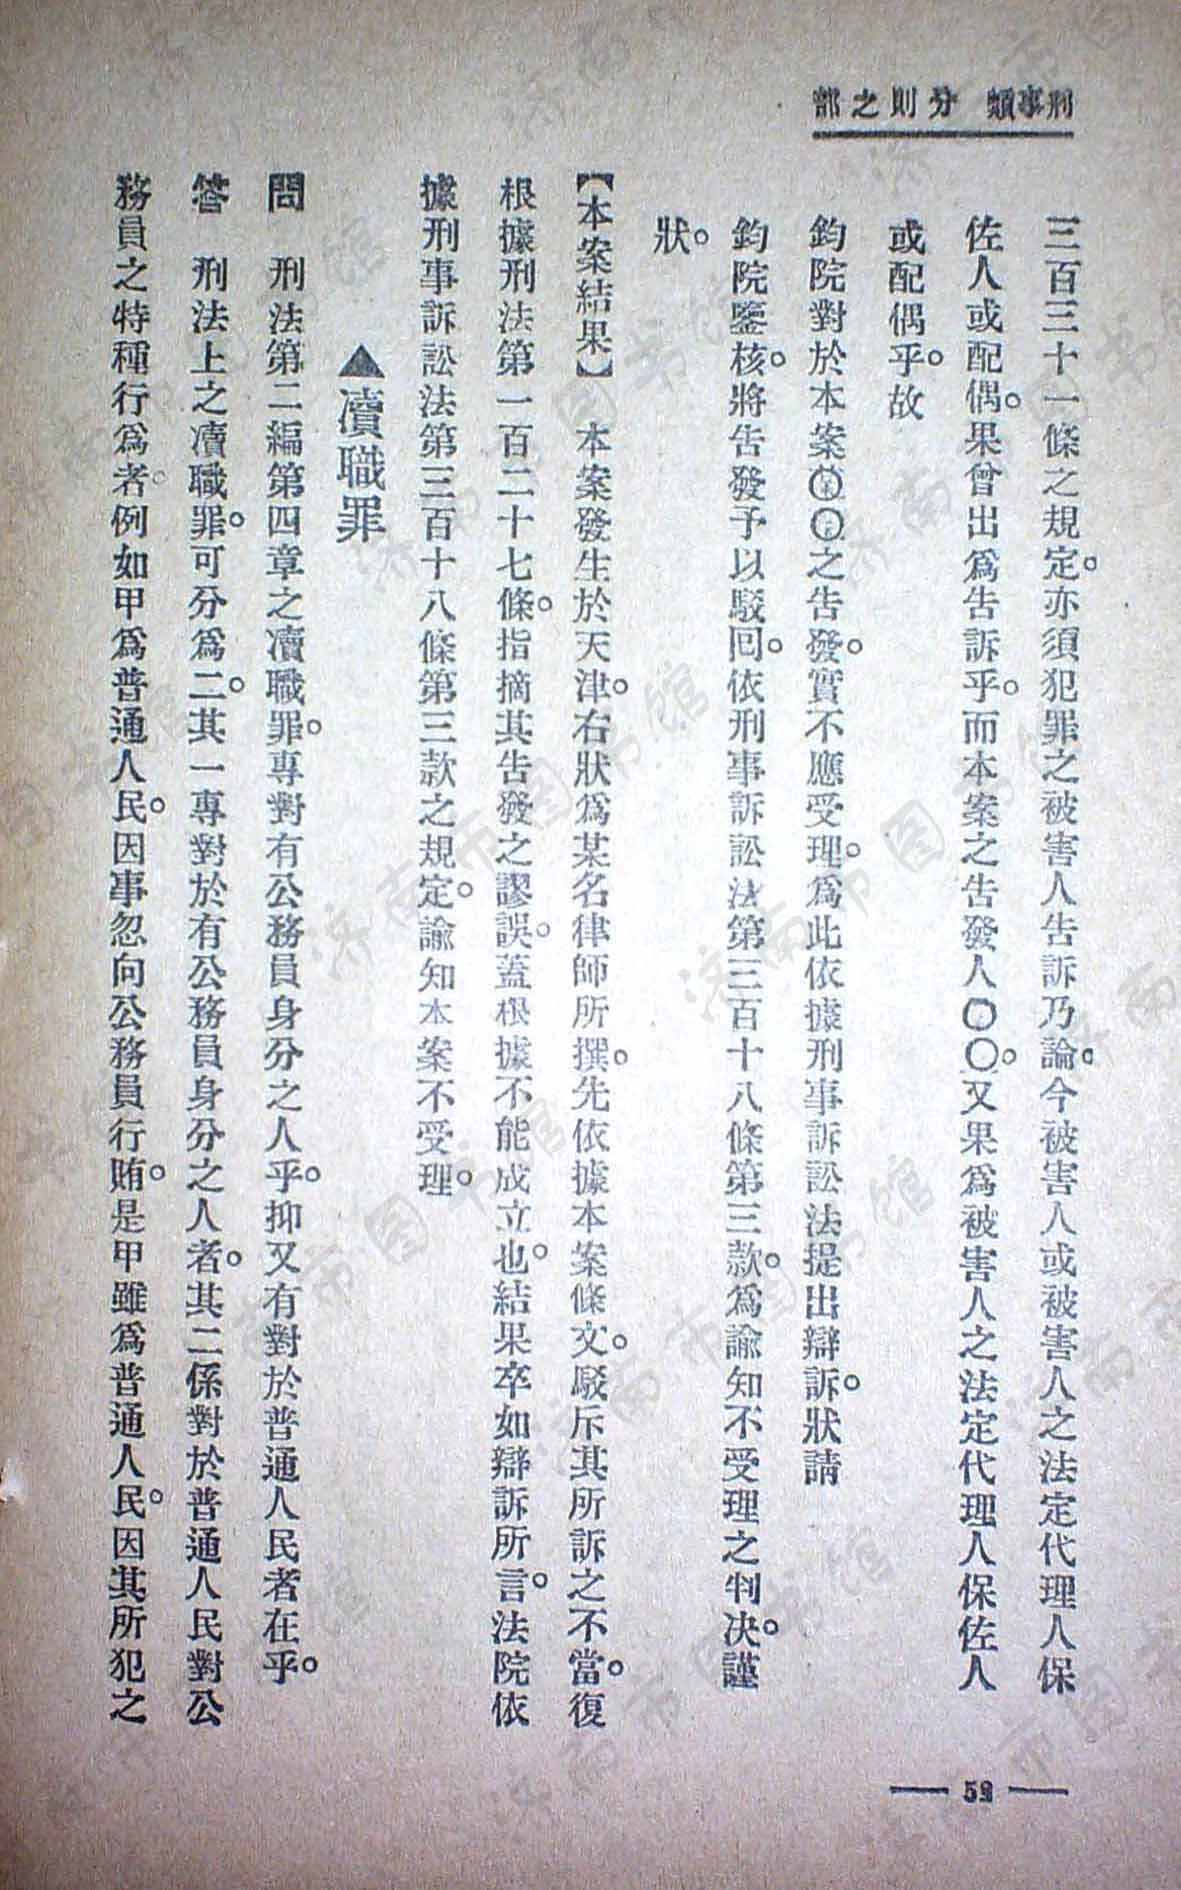 刑事類　分則之部
三百三十一條之規定。亦須犯罪之被害人告訴乃論。今被害人或被害人之法定代理人保
佐人或配偶。果曾出爲告訴乎。而本案之告發人〇〇。又果爲被害人之法定代理人保佐人
或配偶乎。故
鈞院對於本案〇〇之告發。實不應受理。爲此依據刑事訴訟法提出辯訴。狀請
鈞院鑒核。將告發予以駁回。依刑事訴訟法第三百十八條第三款。爲諭知不受理之判决。謹
狀。
【本案結果】　本案發生於天津。右狀爲某名律師所撰。先依據本案條文。駁斥其所訴之不當。復
根據刑法第一百二十七條。指摘其告發之謬誤。蓋根據不能成立也。結果卒如辯訴所言。法院依
據刑事訴訟法第三百十八條第三款之規定。諭知本案不受理。
▲瀆職罪
問　刑法第二編第四章之瀆職罪。專對有公務員身分之人乎。抑又有對於普通人民者在乎。
答　刑法上之瀆職罪。可分爲二。其一專對於有公務員身分之人者。其二係對於普通人民對公
務員之特種行爲者。例如甲爲普通人民。因事忽向公務員行賄。是甲雖爲普通人民。因其所犯之
— 59 —
济南市图书馆